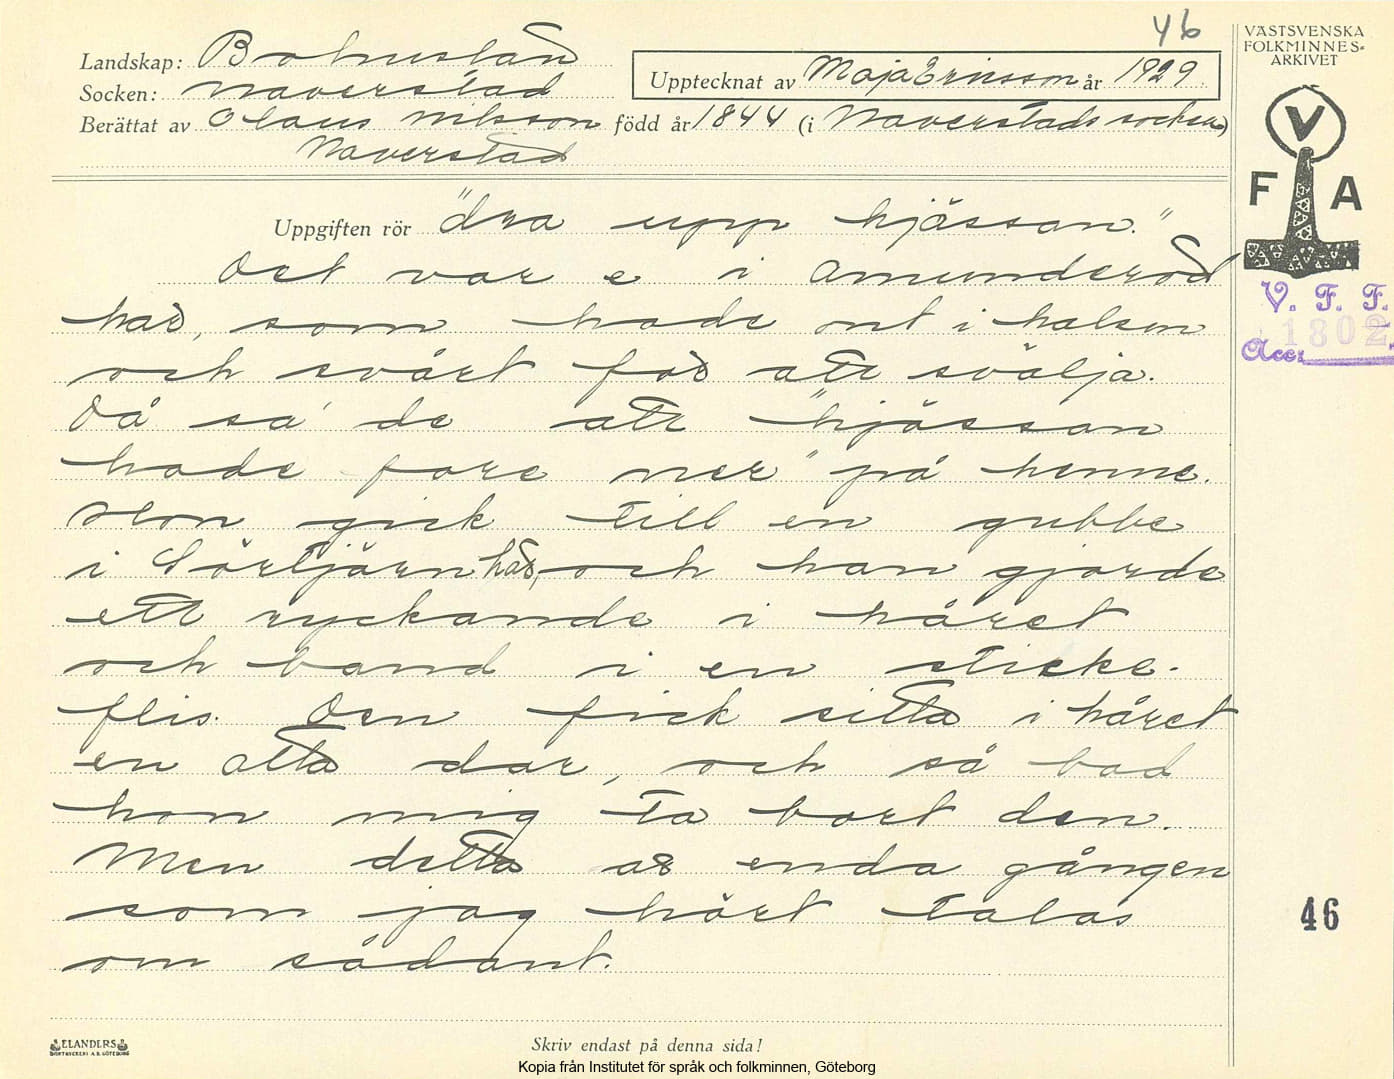 46
VÄSTSVENSKA
FOLKMINNES-
ARKIVET
Landskap: Bohuslän
Upptecknat av Maja Ericsson år 1929
Socken: Naverstad
Berättat av Olaus Nilsson född år 1844 (i Naverstads socken)
Naverstad
V
F A
Uppgiften rör "dra upp hjässan."
Det var e i Amunderöd
här, som hade ont i halsen
och svårt för att svälja.
Då sa' de att "hjässan
hade fare ner" på henne.
Hon gick till en gubbe
i Sörtjärn här, och han gjorde
ett ryckande i håret
och band i en sticke-
flis. Den fick sitta i håret
en åtta dar, och så bad
hon mig ta bort den.
Men detta är enda gången
som jag hört talas
om sådant.
V. F. F.
1802
Acc.
46
ELANDERS
BOKTRYCKERI A.B. GÖTEBORG
Skriv endast på denna sida!
Kopia från Institutet för språk och folkminnen, Göteborg